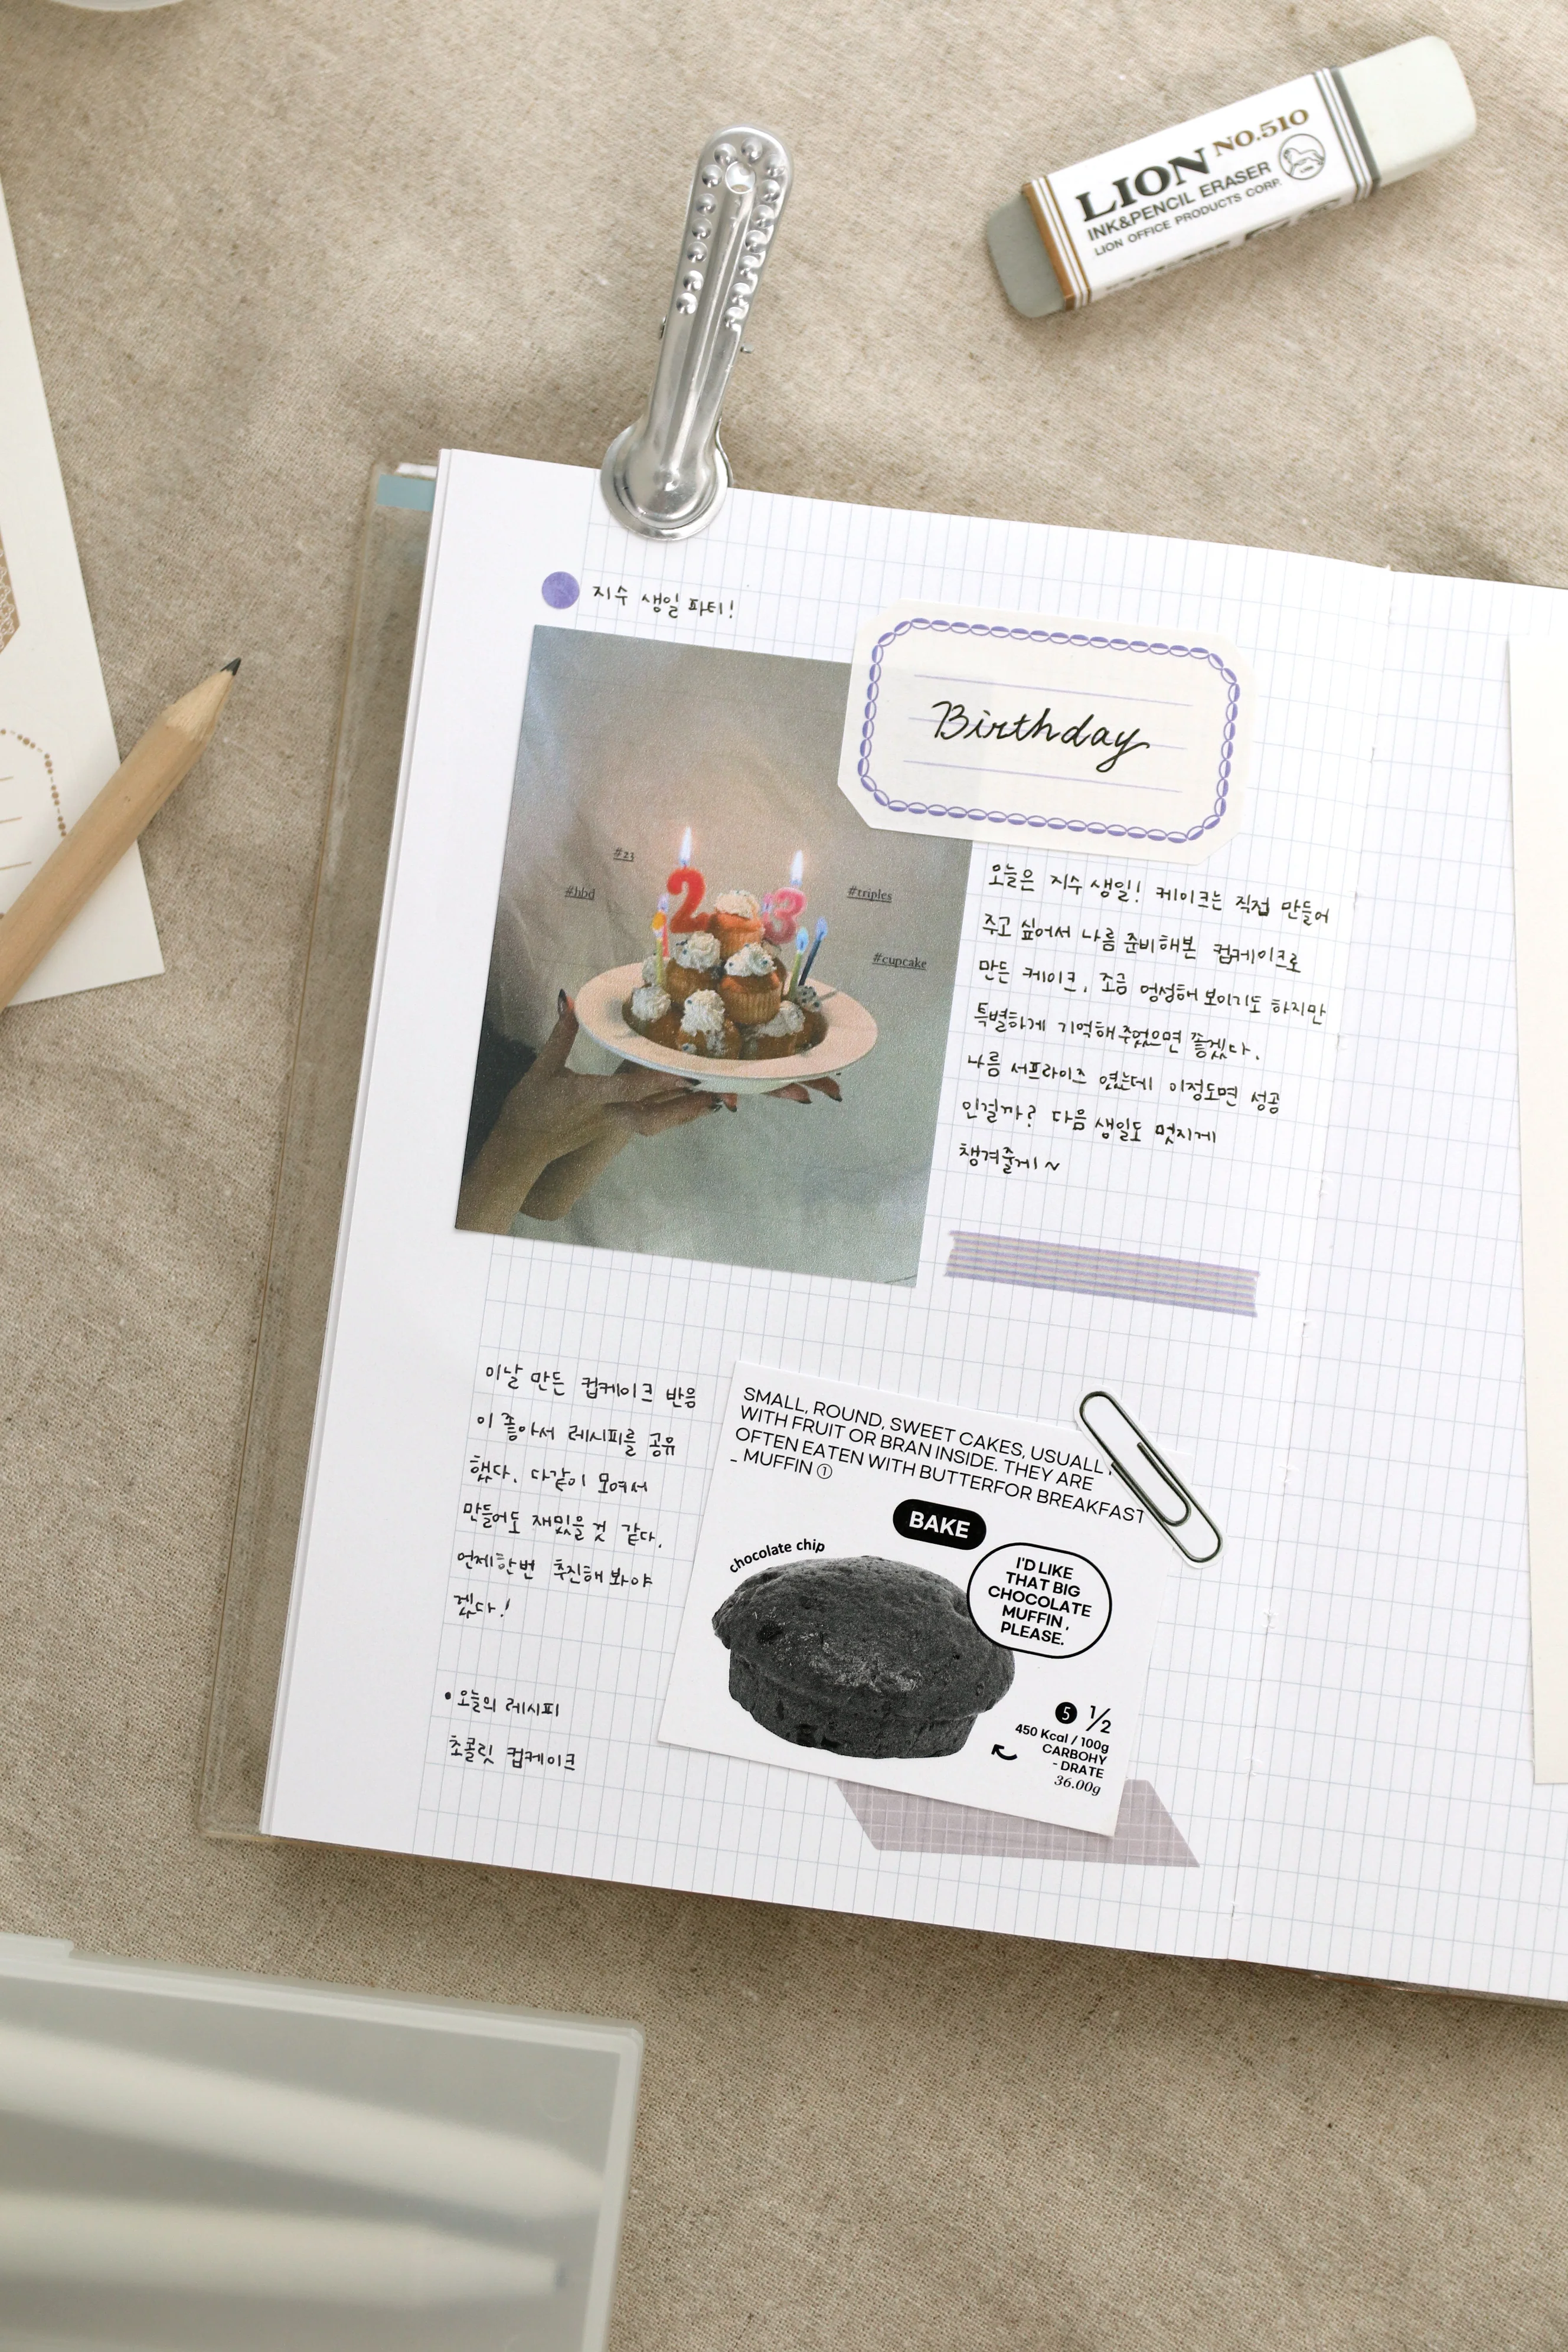 LION NO.510
INK&PENCIL ERASER
LION OFFICE PRODUCTS CORP.
지수 생일 파티!
Birthday
#23
#hbd
#triples
#cupcake
오늘은 지수 생일! 케이크는 직접 만들어
주고 싶어서 나름 준비해본 컵케이크로
만든 케이크. 조금 엉성해 보이기도 하지만
특별하게 기억해주었으면 좋겠다.
나름 서프라이즈 였는데 이정도면 성공
인걸까? 다음 생일도 멋지게
챙겨줄게~
이날 만든 컵케이크 반응
이 좋아서 레시피를 공유
했다. 다같이 모여서
만들어도 재밌을 것 같다.
언제한번 추진해 봐야
겠다!
• 오늘의 레시피
초콜릿 컵케이크
SMALL, ROUND, SWEET CAKES, USUALLY
WITH FRUIT OR BRAN INSIDE. THEY ARE
OFTEN EATEN WITH BUTTERFOR BREAKFAST
- MUFFIN ①
BAKE
chocolate chip
I'D LIKE
THAT BIG
CHOCOLATE
MUFFIN,
PLEASE.
5 1/2
450 Kcal / 100g
CARBOHY
- DRATE
36.00g